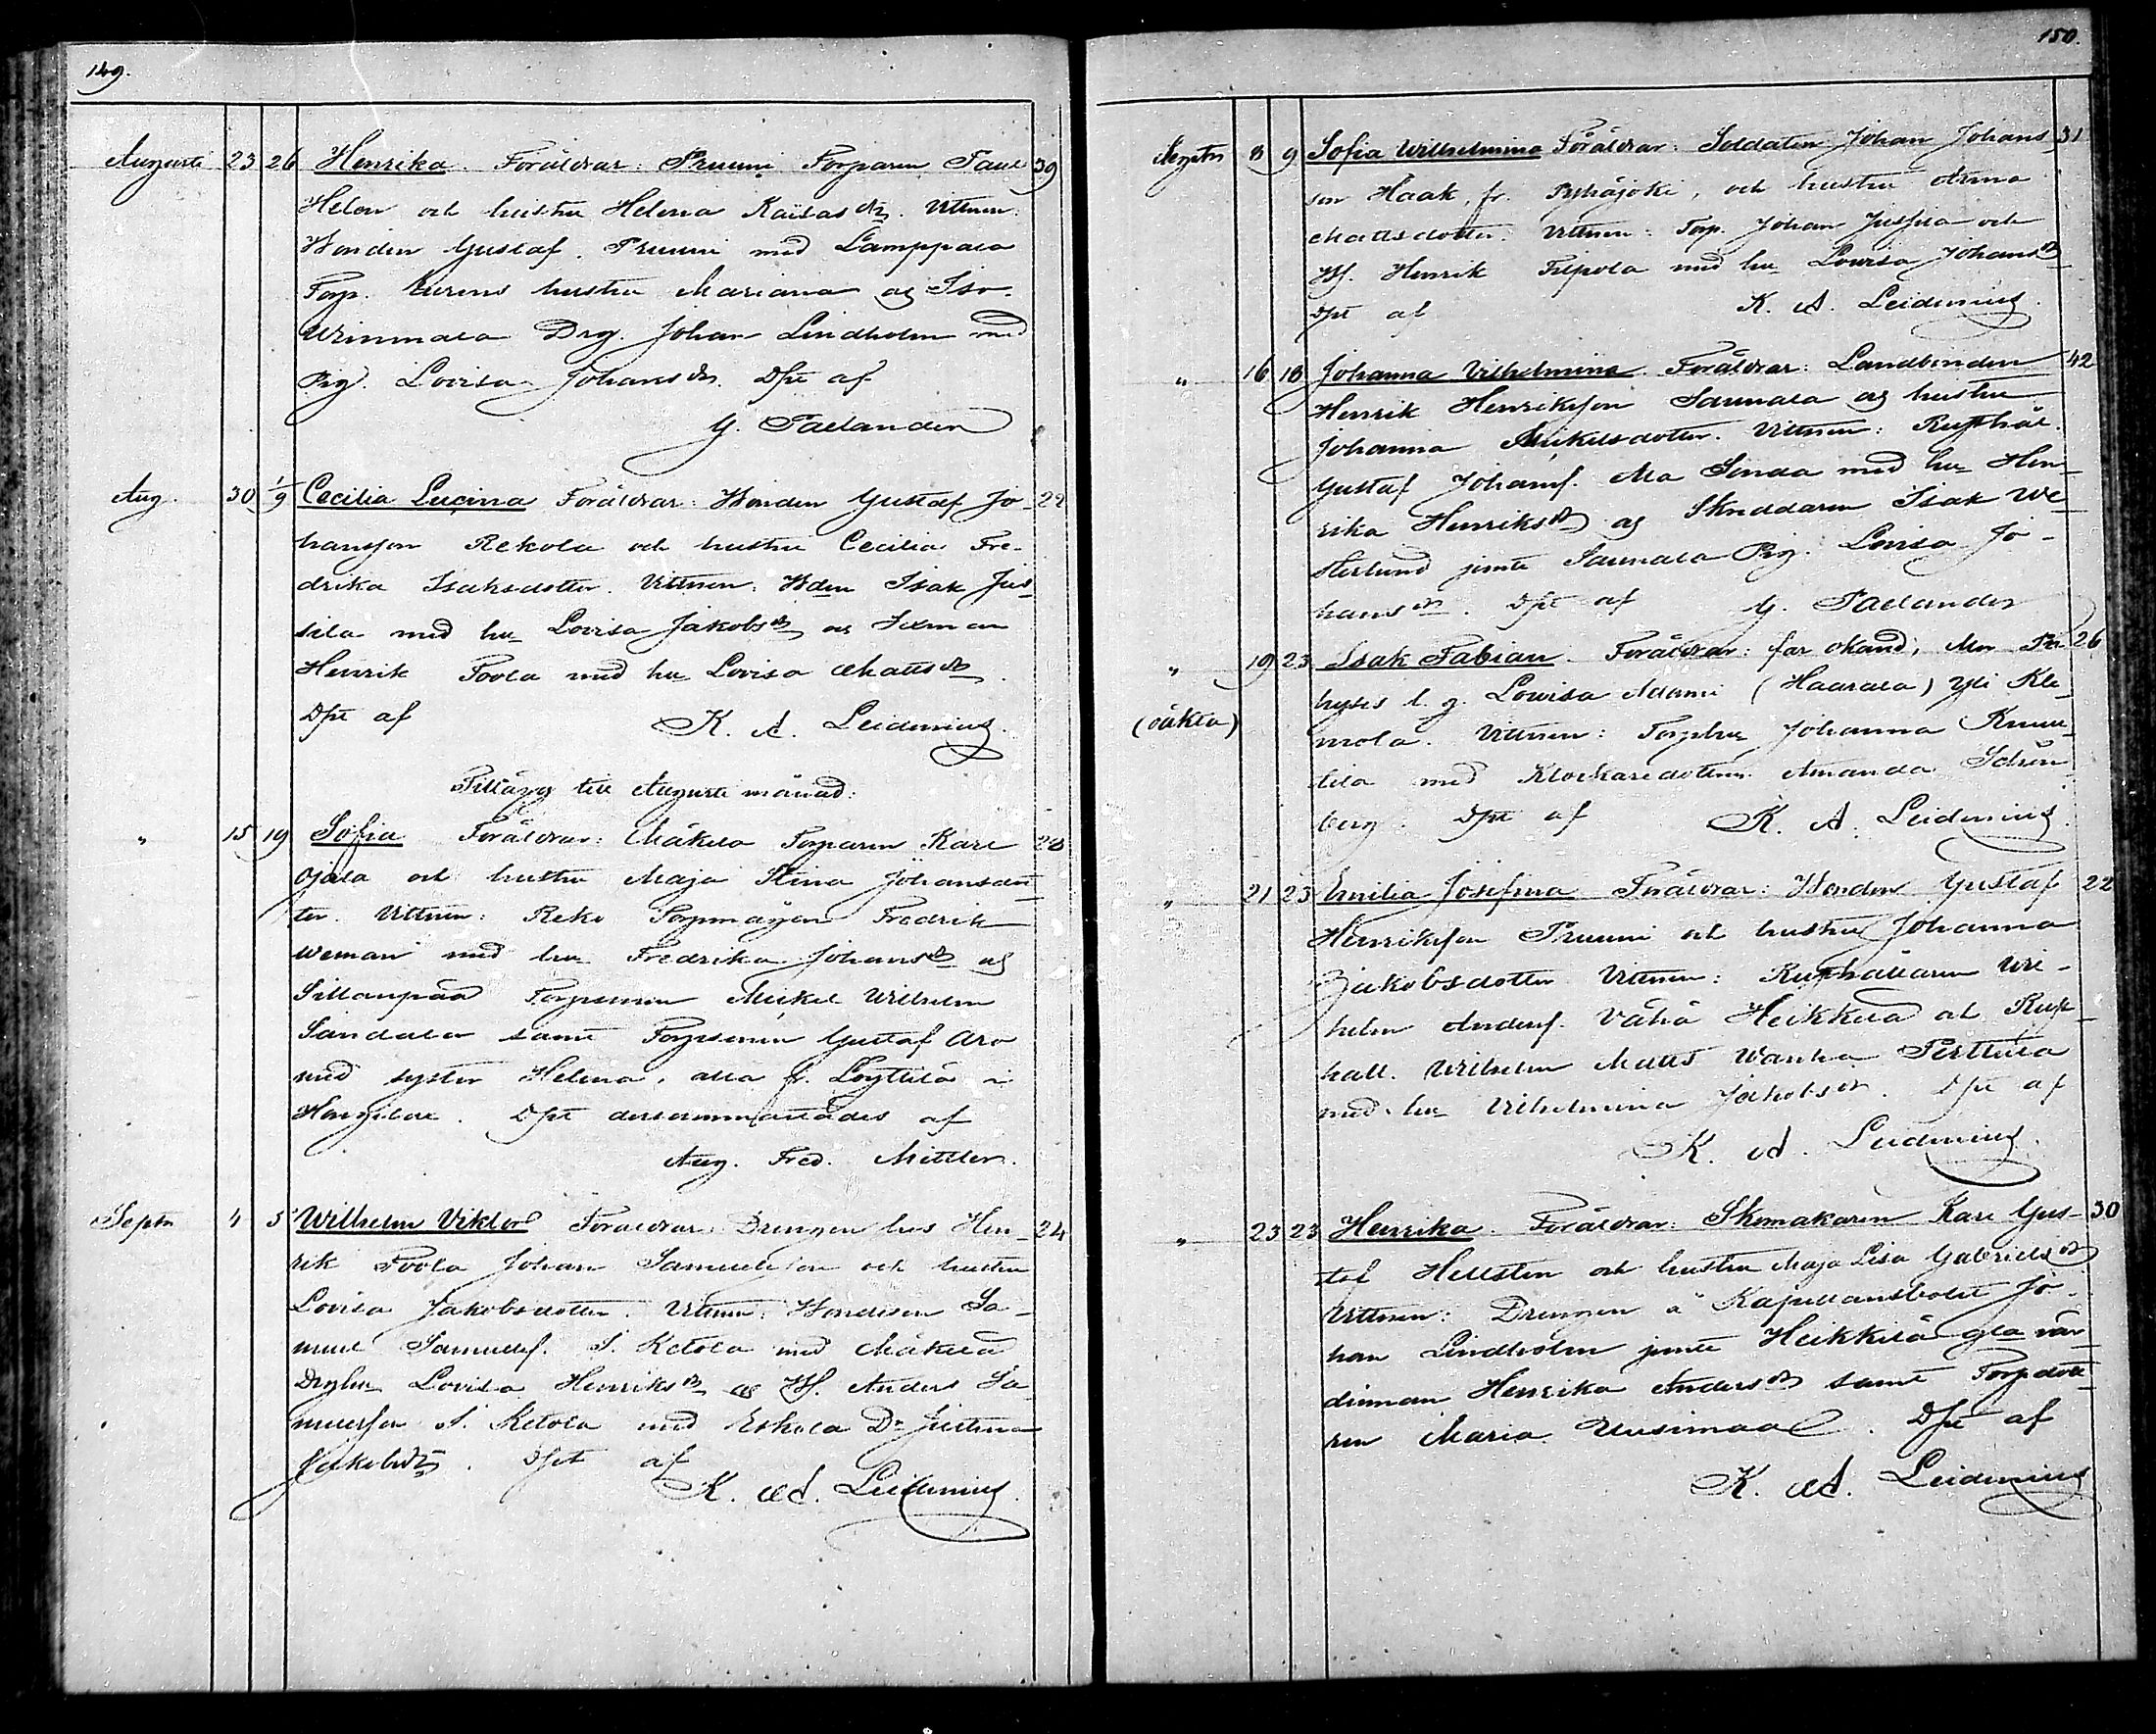 149.
Augusti 23 26 Henrika. Föräldrar: Pruuni Torparen Paul 39
Helen och hustru Helena Kaisasdr. Vittnen:
Bonden Gustaf Pruuni med Lamppala
Torp. hustru Mariana og Iso-
Drg. Johan Lindholm med
Pig. Lovisa Johansdr. Dpt af
G. Paelander
Aug. 30 1/9 Cecilia Lucina Föräldrar: Bonden Gustaf Jo- 22
hansson Rekola och hustru Cecilia Fre-
drika Isaksdotter. Vittnen: Bden Isak Jus-
sila med hu Lovisa Jakobsdr og Sexman
Henrik Poola med hu Lovisa Mattsdr.
Dpt af K. A. Leidenius.
Tillägg till Augusti månad:
" 15 19 Sofia Föräldrar: Mäkelä Torparen Karl 28
Ojala och hustru Maja Stina Johansdot-
ter. Vittnen: Reko Torpmågen Fredrik
Weman med hu Fredrika Johansdr og
Sillanpää Torpsonen Mickel Wilhelm
Sandala samt Torpsonen Gustaf Aro
med syster Helena, alla fr. Löyttilä i
Dpt dersammastädes af
Aug. Fred. Mittler.
Septr 4 5 Wilhelm Viktor Föräldrar: Drengen hos Hen- 24
rik Poola Johan Samuelsson och hustru
Lovisa Jakobsdotter. Vittnen: Bondeson Sa-
muel Samuelss. S. Ketola med Mäkelä
Drghu Lovisa Henriksdr og Bs. Anders Sa-
muelsson S. Ketola med Eskola Dr Justina
Jakobsdr. Dpt af
K. A. Leidenius.
150.
Septr 8 9 Sofia Wilhelmina Föräldrar: Soldaten Johan Johans- 31
son Haak, fr. Pyhäjoki, och hustru Anna
Mattsdotter. Vittnen: Torp. Johan och
Bs. Henrik med hu Lowisa Johansdr
Dpt af K. A. Leidenius.
" 16 18 Johanna Vilhelmina Föräldrar: Landbonden 42
Henrik Henriksson Saunala og hustru
Johanna Mickelsdotter. Vittnen: Rusthål.
Gustaf Johanss. Ala Sonda med hu Hen-
rika Henriksdr og Skräddaren Isak We-
sterlund jemte Saunala Pig. Lovisa Jo-
hansdr. Dpt af G. Paelander
" 19 23 Isak Fabian. Föräldrar: far okänd; Mor 26
(oäkta) hyses l. g. Lowisa Adami (Haarala) Yli Kle-
mola. Vittnen: Torphu Johanna Knuu-
tila med Klockaredottren Amanda Schön-
berg. Dpt af K. A. Leidenius.
" 21 23 Emilia Josefina Föräldrar: Bonden Gustaf 22
Henriksson Pruuni och hustru Johanna
Jakobsdotter Vittnen: Rusthållaren Wil-
helm Anderss. Vähä Heikkilä och Rust-
håll. Wilhelm Matts Wanha Perttula
med hu Vilhelmina Jakobsdr. Dpt af
K. A. Leidenius.
" 23 23 Henrika. Föräldrar: Skomakaren Karl Gus- 30
taf Hellsten och hustru Maja Lisa Gabrielsdr
Vittnen: Drengen å Kapellansbolet Jo-
han Lindholm jemte Heikkilä gla vär-
dinnan Henrika Andersdr samt Torpdott-
ren Maria Uusimaa. Dpt af
K. A. Leidenius